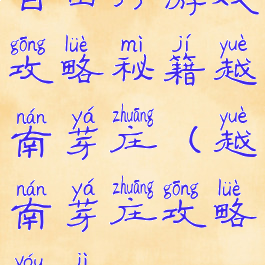 gōng lüè mì jí yuè
攻略秘籍越
nán yá zhuāng yuè
南芽庄(越
nán yá zhuāng gōng lüè
南芽庄攻略
yóu jì